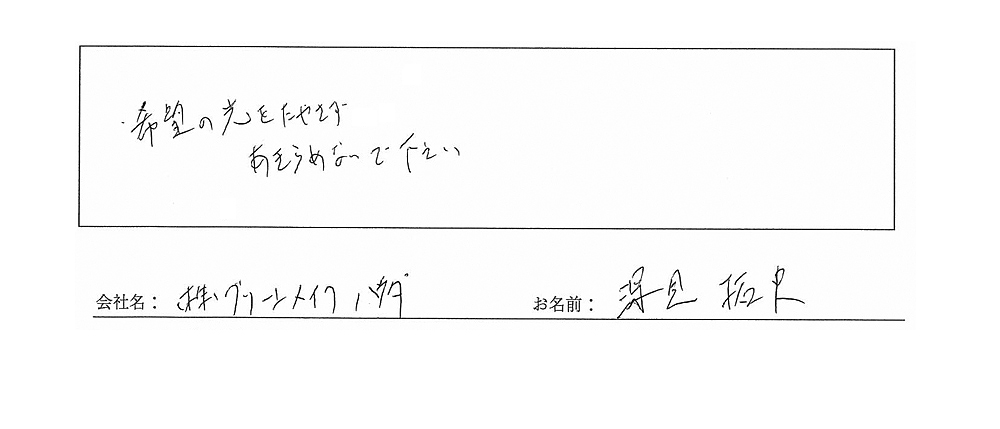 ・希望の光をたやさず
あきらめないで下さい
会社名: (株)グリーンメイク ハタダ
お名前: 深見 拓史